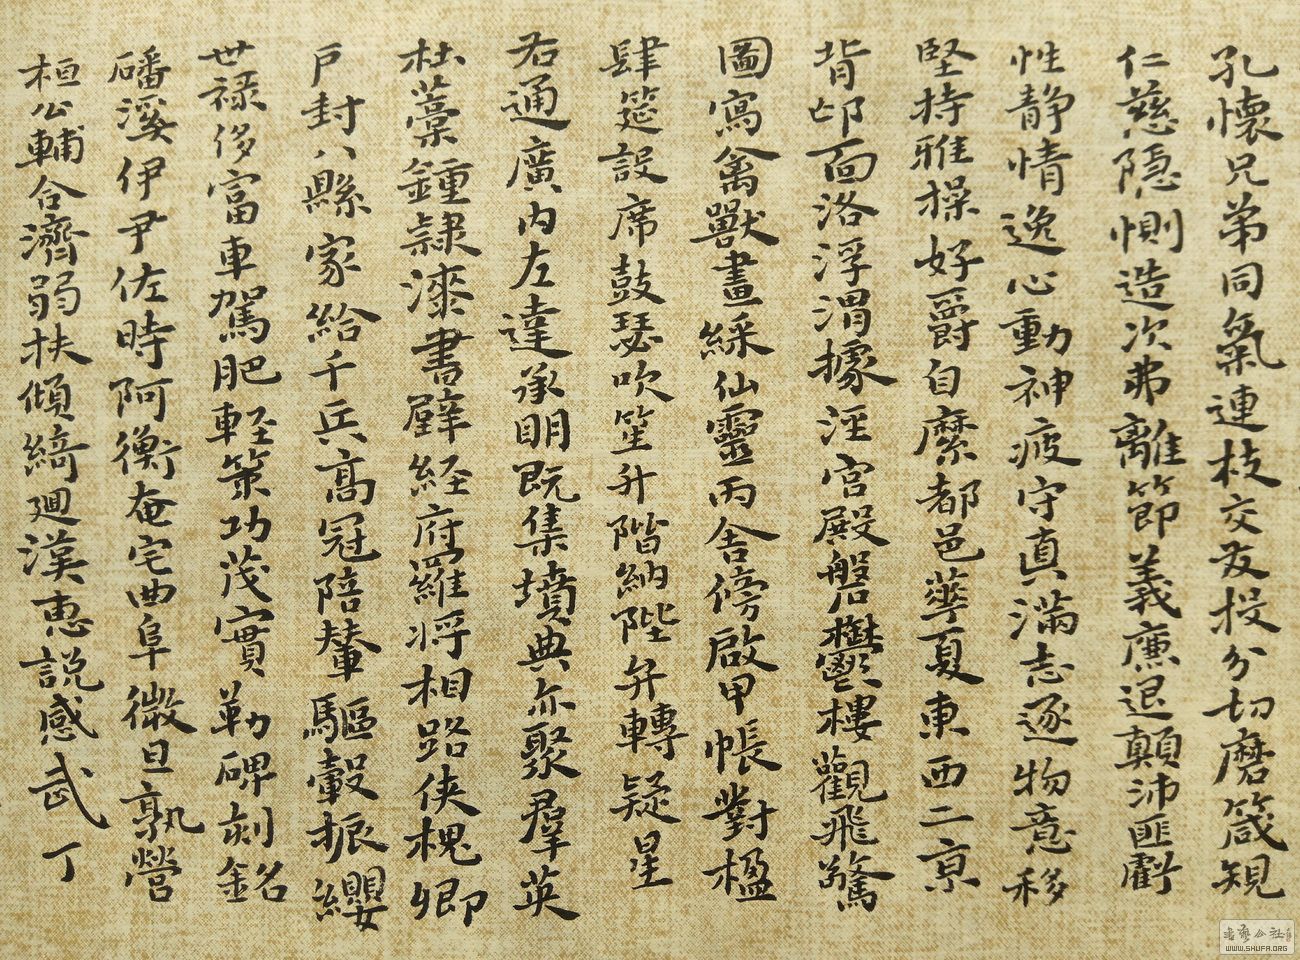 孔懷兄弟同氣連枝交友投分切磨箴規
仁慈隱惻造次弗離節義廉退顛沛匪虧
性靜情逸心動神疲守真滿志逐物意移
堅持雅操好爵自縻都邑華夏東西二京
背邙面洛浮渭據涇宮殿磐鬱樓觀飛驚
圖寫禽獸畫綵仙靈丙舍傍啟甲帳對楹
肆筵設席鼓瑟吹笙升階納陛弁轉疑星
右通廣內左達承明既集墳典亦聚羣英
杜藁鍾隸漆書壁經府羅將相路俠槐卿
戶封八縣家給千兵高冠陪輦驅轂振纓
世祿侈富車駕肥輕策功茂實勒碑刻銘
磻溪伊尹佐時阿衡奄宅曲阜微旦孰營
桓公輔合濟弱扶傾綺迴漢惠說感武丁
WWW.SHUFA.ORG